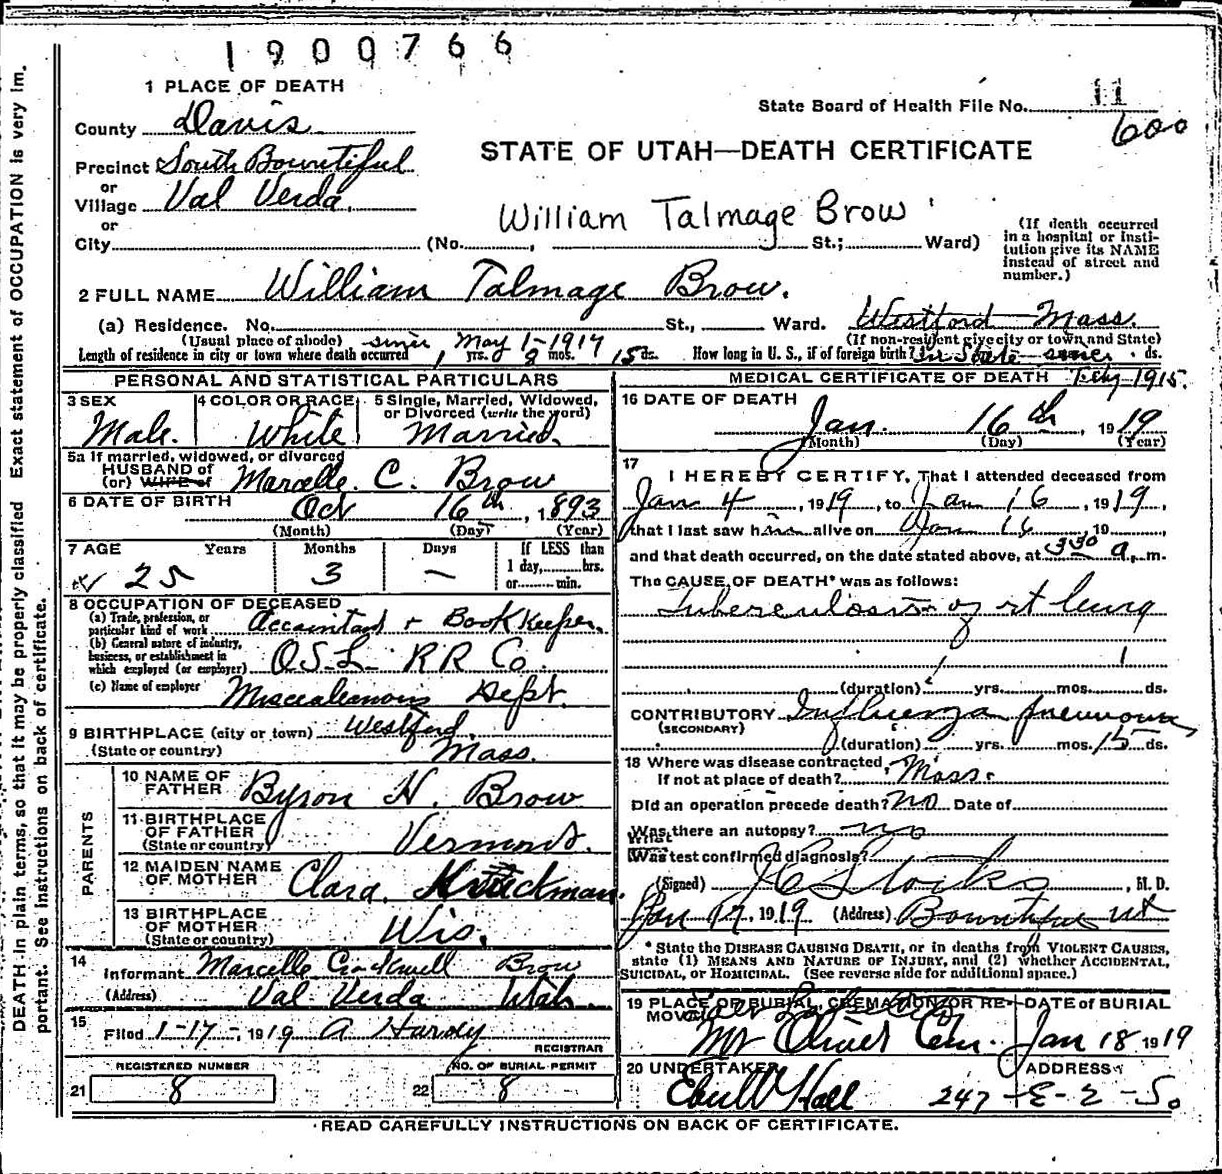 1900766
1 PLACE OF DEATH
State Board of Health File No. 11
600
County Davis
STATE OF UTAH—DEATH CERTIFICATE
Precinct South Bountiful
or
Village Val Verda
or
William Talmage Brow
City (No. , St.; Ward)
(If death occurred in a hospital or institution give its NAME instead of street and number.)
2 FULL NAME William Talmage Brow.
(a) Residence. No. St., Ward. Westford Mass.
(Usual place of abode) since May 1-1917 (If non-resident give city or town and State)
Length of residence in city or town where death occurred 1 yrs. 8 mos. 15 ds. How long in U. S., if of foreign birth? In State since ds.
PERSONAL AND STATISTICAL PARTICULARS
3 SEX Male.
4 COLOR OR RACE White
5 Single, Married, Widowed, or Divorced (write the word) Married.
5a If married, widowed, or divorced
HUSBAND of
(or) WIFE of Marcelle C. Brow
6 DATE OF BIRTH Oct 16th, 1893
(Month) (Day) (Year)
7 AGE Years Months Days If LESS than
25 3 — 1 day, hrs.
or min.
8 OCCUPATION OF DECEASED
(a) Trade, profession, or particular kind of work Accountant + Book Keeper.
(b) General nature of industry, business, or establishment in which employed (or employer) O.S.L. R R Co.
(c) Name of employer Miscealeanous Dept.
9 BIRTHPLACE (city or town) Westford.
(State or country) Mass.
PARENTS
10 NAME OF FATHER Byron H. Brow
11 BIRTHPLACE OF FATHER (State or country) Vermont.
12 MAIDEN NAME OF MOTHER Clara
13 BIRTHPLACE OF MOTHER (State or country) Wis.
14
Informant Marcelle Brow
(Address) Val Verda Utah.
15
Filed 1-17-, 1919 A Hardy
REGISTRAR
REGISTERED NUMBER
21 8
NO. OF BURIAL PERMIT
22 8
MEDICAL CERTIFICATE OF DEATH Feby 1915.
16 DATE OF DEATH
Jan. 16th, 1919
(Month) (Day) (Year)
17
I HEREBY CERTIFY, That I attended deceased from
Jan 4, 1919, to Jan 16, 1919,
that I last saw him alive on Jan 16, 19
and that death occurred, on the date stated above, at 3 30 a. m.
The CAUSE OF DEATH* was as follows:
Tuberculosis of rt lung
(duration) yrs. mos. ds.
CONTRIBUTORY Influenza pneumonia
(SECONDARY)
(duration) yrs. mos. 15 ds.
18 Where was disease contracted,
If not at place of death? Mass.
Did an operation precede death? no Date of
Was there an autopsy? no
What
Was test confirmed diagnosis?
(Signed) Stocks, M. D.
Jan 17, 1919 (Address) Bountiful Ut
* State the DISEASE CAUSING DEATH, or in deaths from VIOLENT CAUSES,
state (1) MEANS AND NATURE OF INJURY, and (2) whether ACCIDENTAL,
SUICIDAL, or HOMICIDAL. (See reverse side for additional space.)
19 PLACE OF BURIAL, CREMATION OR RE-
MOVAL
Mt Olivet Cem.
DATE of BURIAL
Jan 18 1919
20 UNDERTAKER
Eber W Hall
ADDRESS
247-E-2-So
READ CAREFULLY INSTRUCTIONS ON BACK OF CERTIFICATE.
DEATH in plain terms, so that it may be properly classified Exact statement of OCCUPATION is very im-
portant. See instructions on back of certificate.